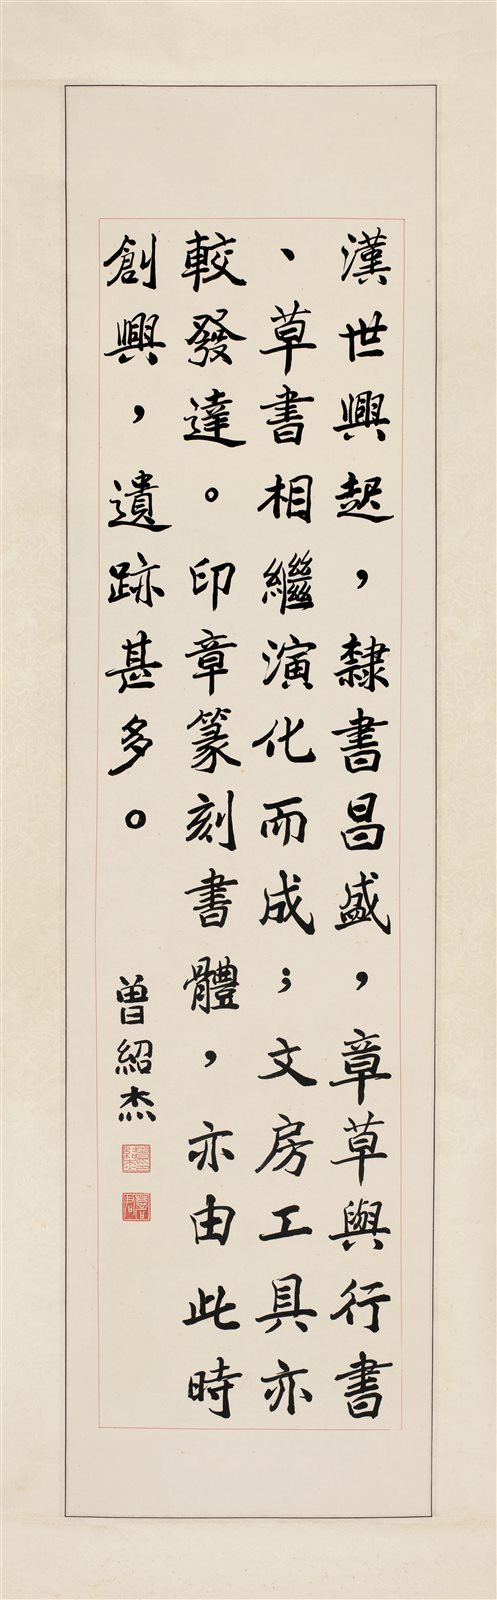 漢世興起,隸書昌盛,章草與行書
、草書相繼演化而成;文房工具亦
較發達。印章篆刻書體,亦由此時
創興,遺跡甚多。
曾紹杰